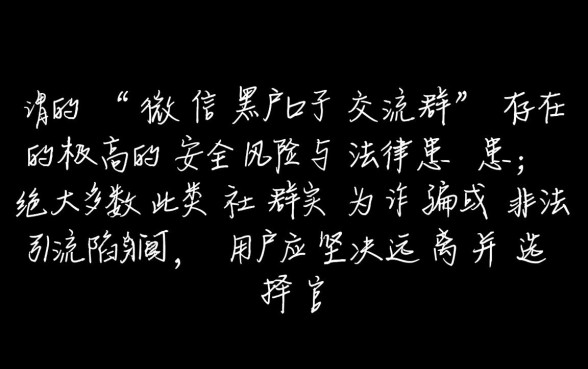 谓的 “微信黑户口子交流群” 存在
的极高的安全风险与法律患 患；
绝大多数此类社群实为诈骗或非法
引流陷阱，用户应坚决远离并选
择官